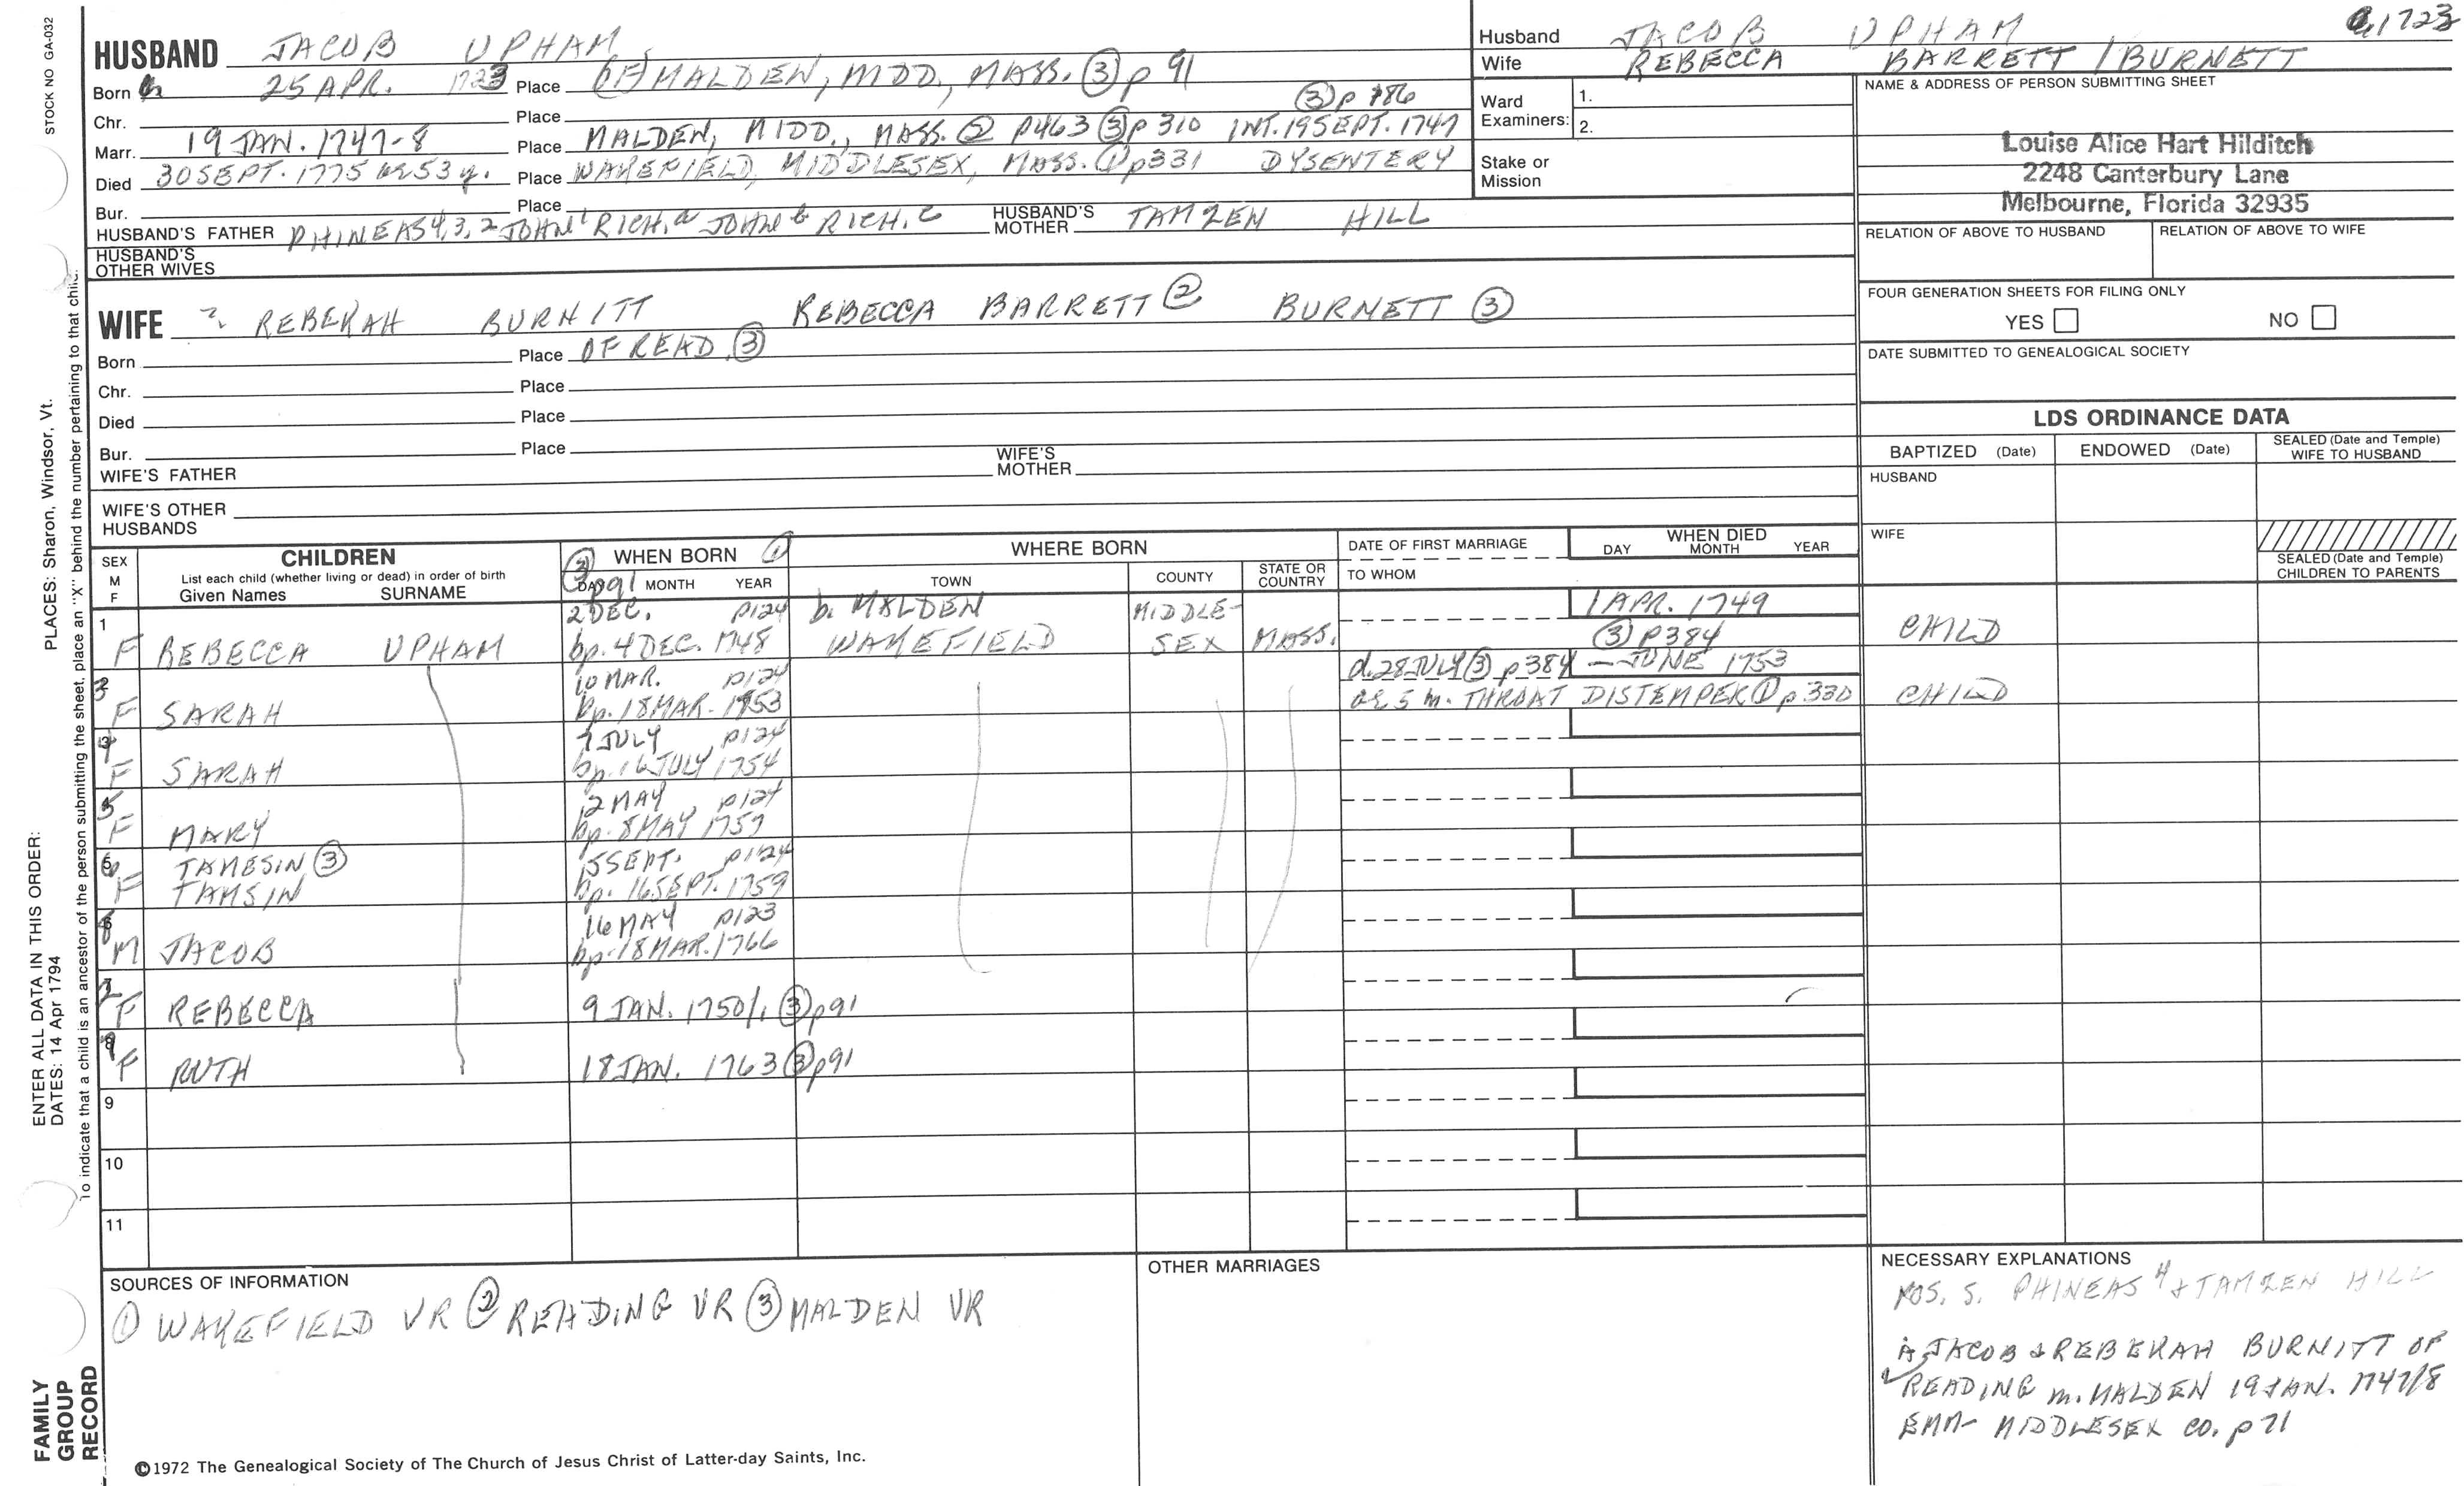 STOCK NO GA-032
HUSBAND JACOB UPHAM
Born 25 APR. 1723 Place (OF) MALDEN, MIDD, MASS. ③ p 91
Chr. Place ③ p 186
Marr. 19 JAN. 1747-8 Place MALDEN, MIDD., MASS. ② P463 ③ p 310 INT. 19 SEPT. 1747
Died 30 SEPT. 1775 ae 53 y. Place WAKEFIELD, MIDDLESEX, MASS. ① p331 DYSENTERY
Bur. Place
HUSBAND'S FATHER PHINEAS 4,3,2 JOHN 1 RICH. a JOHN b RICH. c HUSBAND'S MOTHER TAMZEN HILL
HUSBAND'S OTHER WIVES
Husband JACOB UPHAM 1723
Wife REBECCA BARRETT / BURNETT
Ward Examiners: 1.
2.
Stake or Mission
NAME & ADDRESS OF PERSON SUBMITTING SHEET
Louise Alice Hart Hilditch
2248 Canterbury Lane
Melbourne, Florida 32935
RELATION OF ABOVE TO HUSBAND RELATION OF ABOVE TO WIFE
FOUR GENERATION SHEETS FOR FILING ONLY
YES NO
DATE SUBMITTED TO GENEALOGICAL SOCIETY
WIFE ?. REBEKAH BURNITT REBECCA BARRETT ② BURNETT ③
Born Place OF READ. ③
Chr. Place
Died Place
Bur. Place
WIFE'S FATHER WIFE'S MOTHER
WIFE'S OTHER HUSBANDS
LDS ORDINANCE DATA
BAPTIZED (Date) ENDOWED (Date) SEALED (Date and Temple) WIFE TO HUSBAND
HUSBAND
WIFE
SEALED (Date and Temple) CHILDREN TO PARENTS
SEX M F
CHILDREN
List each child (whether living or dead) in order of birth
Given Names SURNAME
WHEN BORN ①
③ p91 DAY MONTH YEAR
WHERE BORN
TOWN COUNTY STATE OR COUNTRY
DATE OF FIRST MARRIAGE
TO WHOM
WHEN DIED
DAY MONTH YEAR
1 2 DEC. p124 b. MALDEN MIDDLE- 1 APR. 1749
F REBECCA UPHAM bp. 4 DEC. 1748 WAKEFIELD SEX MASS. ③ P384 CHILD
3 10 MAR. p124 d. 28 JULY ③ p384 — JUNE 1753
F SARAH bp. 18 MAR. 1753 ae 5 m. THROAT DISTEMPER ① p 330 CHILD
4 7 JULY p124
F SARAH bp. 16 JULY 1754
5 2 MAY p124
F MARY bp. 8 MAY 1757
6 TAMESIN ③ 15 SEPT. p124
F TAMSIN bp. 16 SEPT. 1759
8 16 MAY p123
M JACOB bp. 18 MAR. 1766
2 F REBECCA 9 JAN. 1750/1 ③ p91
F RUTH 18 JAN. 1763 ③ p91
9
10
11
SOURCES OF INFORMATION
① WAKEFIELD VR ② READING VR ③ MALDEN VR
OTHER MARRIAGES
NECESSARY EXPLANATIONS
POS. S. PHINEAS 4 & TAMZEN HILL
A JACOB & REBEKAH BURNITT OF
READING m. MALDEN 19 JAN. 1747/8
EMM- MIDDLESEX CO. p 71
©1972 The Genealogical Society of The Church of Jesus Christ of Latter-day Saints, Inc.
FAMILY GROUP RECORD
ENTER ALL DATA IN THIS ORDER:
DATES: 14 Apr 1794
PLACES: Sharon, Windsor, Vt.
To indicate that a child is an ancestor of the person submitting the sheet, place an "X" behind the number pertaining to that child.